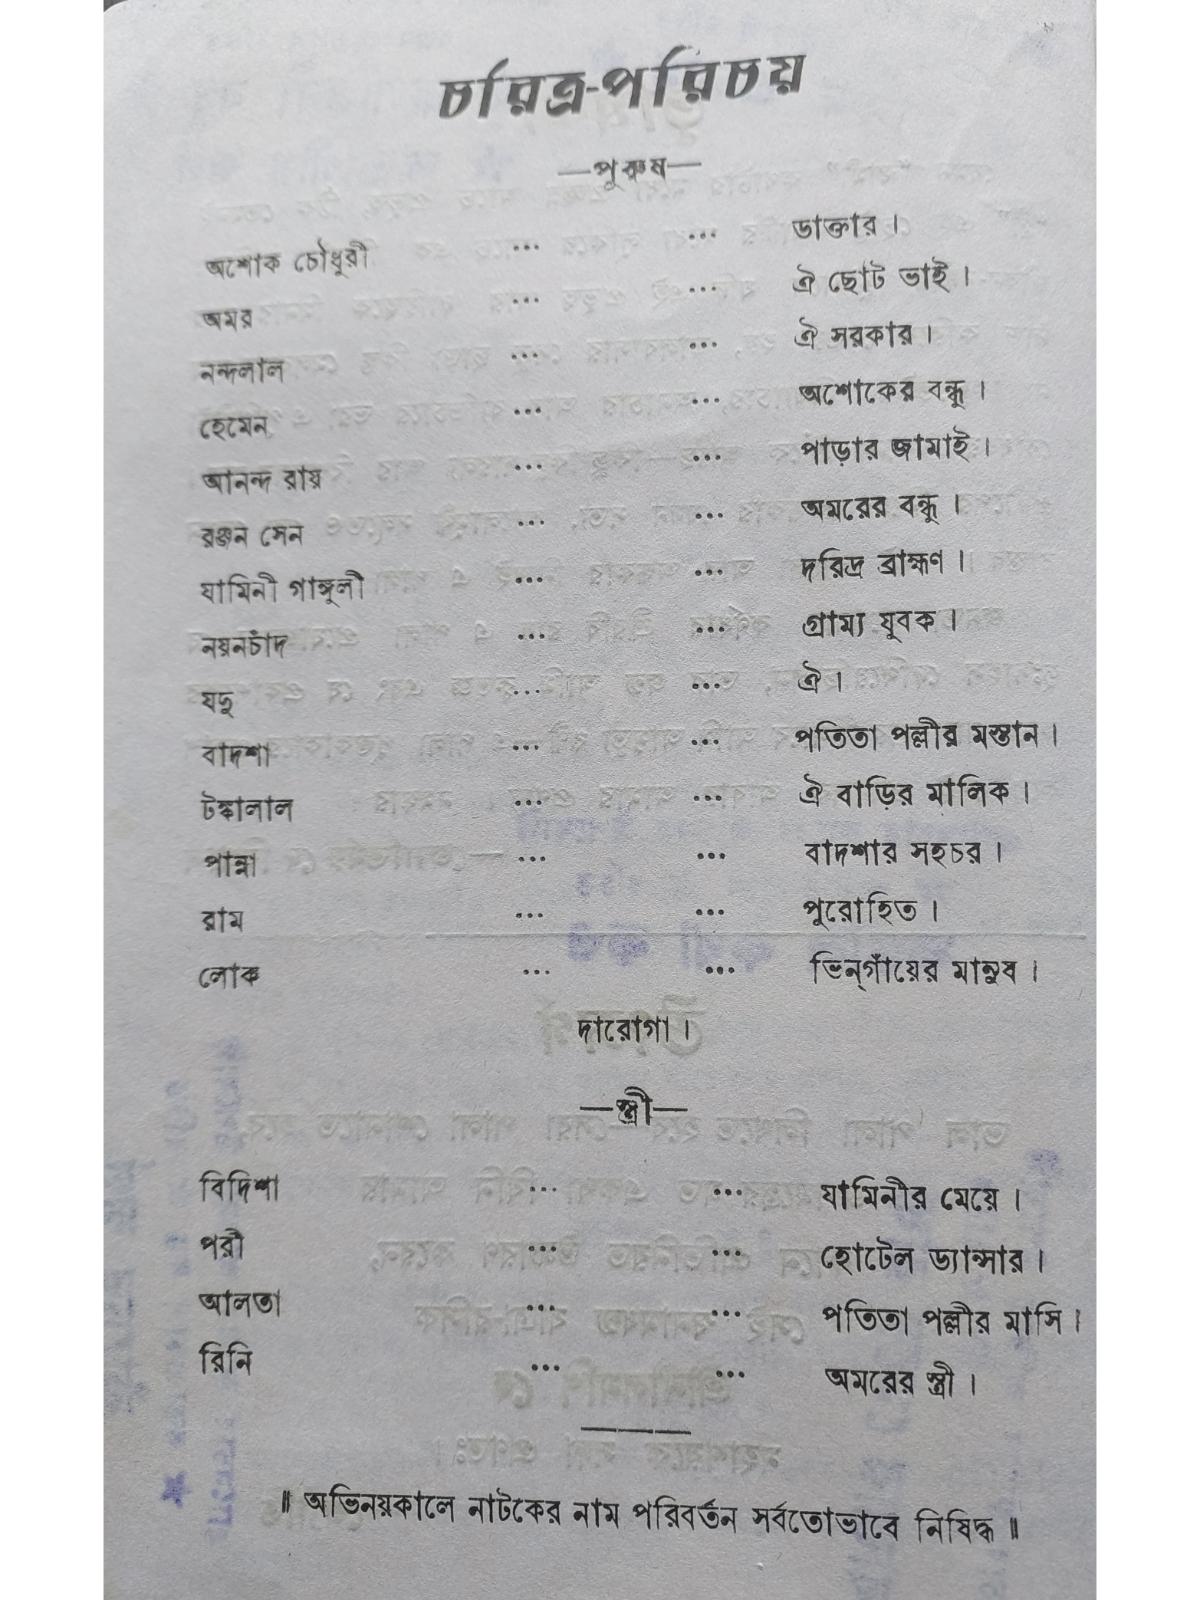 চরিত্র-পরিচয়
—পুরুষ—
অশোক চৌধুরী ... ... ডাক্তার ।
অমর ... ... ঐ ছোট ভাই ।
নন্দলাল ... ... ঐ সরকার ।
হেমেন ... ... অশোকের বন্ধু ।
আনন্দ রায় ... ... পাড়ার জামাই ।
রঞ্জন সেন ... ... অমরের বন্ধু ।
যামিনী গাঙ্গুলী ... ... দরিদ্র ব্রাহ্মণ ।
নয়নচাঁদ ... ... গ্রাম্য যুবক ।
যদু ... ... ঐ ।
বাদশা ... ... পতিতা পল্লীর মস্তান ।
টঙ্কালাল ... ... ঐ বাড়ির মালিক ।
পান্না ... ... বাদশার সহচর ।
রাম ... ... পুরোহিত ।
লোক ... ... ভিন্‌গাঁয়ের মানুষ ।
দারোগা ।
—স্ত্রী—
বিদিশা ... ... যামিনীর মেয়ে ।
পরী ... ... হোটেল ড্যান্সার ।
আলতা ... ... পতিতা পল্লীর মাসি ।
রিনি ... ... অমরের স্ত্রী ।
॥ অভিনয়কালে নাটকের নাম পরিবর্তন সর্বতোভাবে নিষিদ্ধ ॥